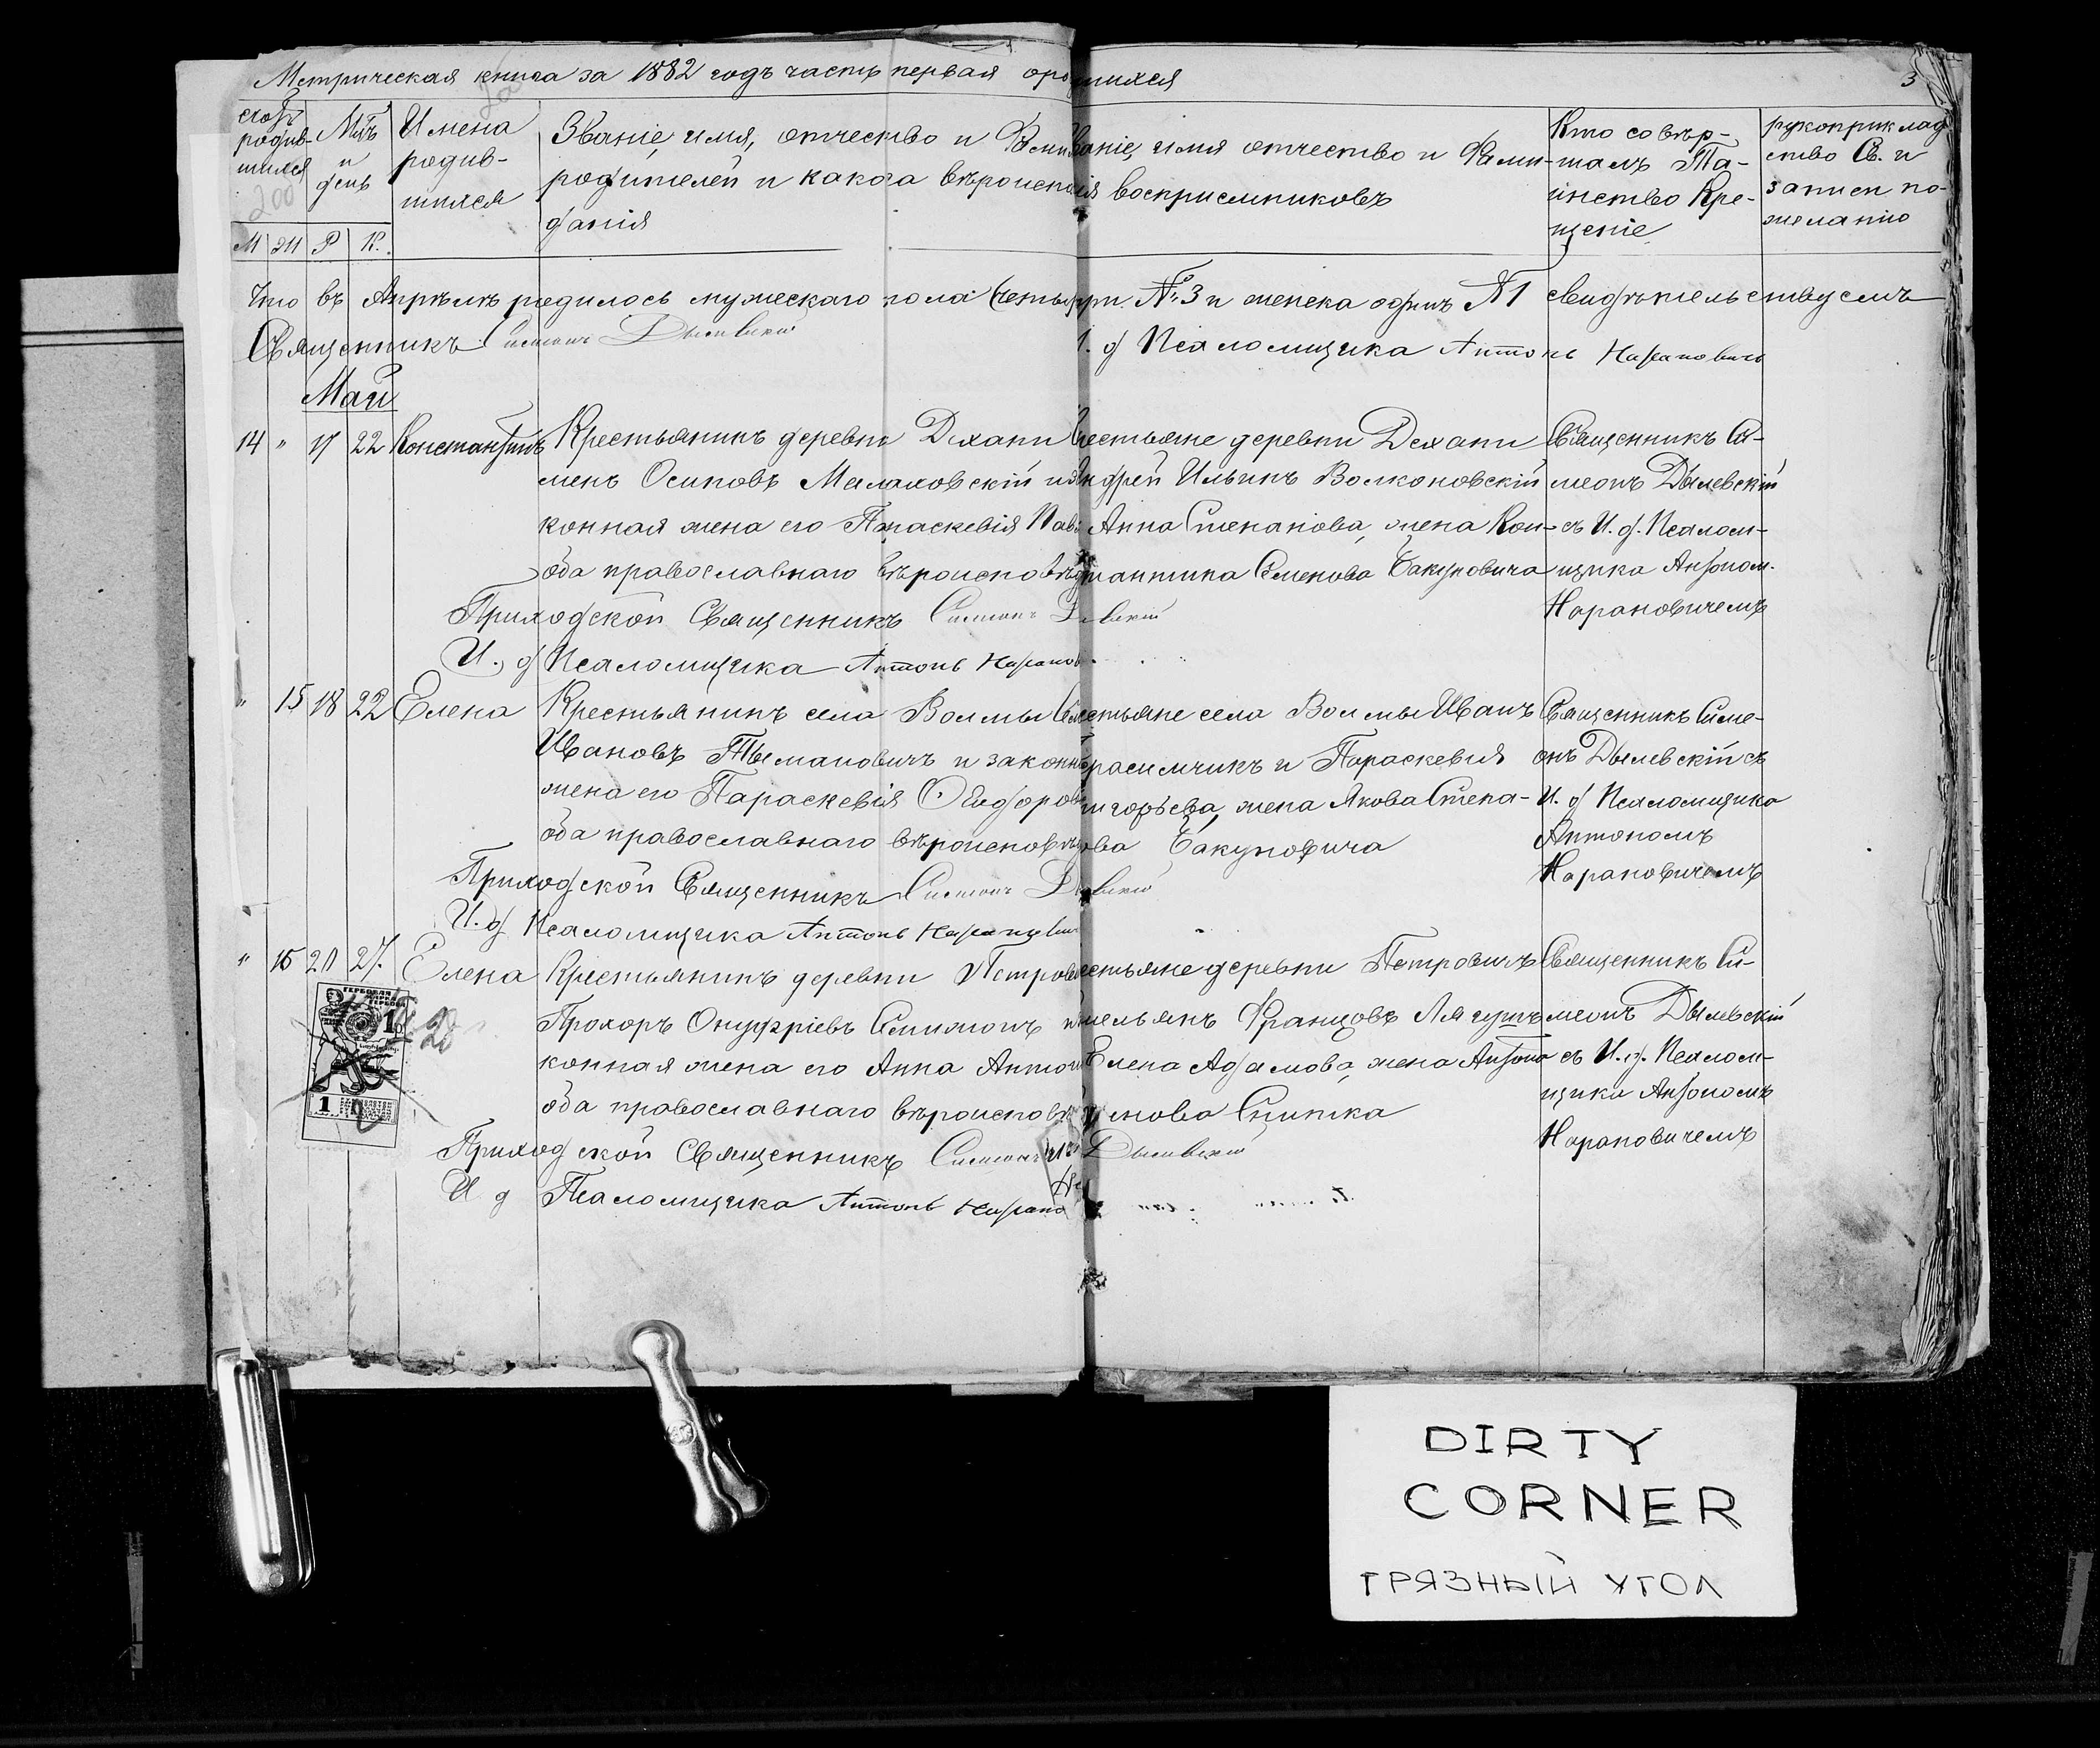 Метрическая книга за 1882 годъ часть первая о родившихся
3
счотъ родив-шихся
Мѣъ и день
Имена родив-шихся
Званіе, имя, отчество и Фами
родителей и какого вѣроисповѣ
данія
Званіе, имя отчество и Фами-
лія воспріемниковъ
Кто совѣр-
шалъ Та-
инство Кре-
щеніе
рукоприклад
ство Св. и
записи по-
желанію
200
М Р К.
Что въ Апрѣлѣ родилось мужескаго пола четыри № 3 и женска одинъ № 1 свидѣтельствуемъ
Священникъ Симеонъ Дылевскій И. д Псаломщика Антонъ Нарановичъ
Май
14 " 17 22 Константинъ
Крестьянинъ деревни Дехани
менъ Осиповъ Малаховскій и за
конная жена его Параскевія Пав
оба православнаго вѣроисповѣд
Крестьяне деревни Дехани
Андрей Ильинъ Волконовскій
Анна Степанова, жена Кон-
стантина Семенова Бакуновича
Священникъ Си-
меонъ Дылевскій
съ И. д. Псалом-
щика Антоном.
Нарановичемъ
Приходской Священникъ Симеонъ Дылевскій
И. д Псаломщика Антонъ Наранов
" 15 18 22 Елена
Крестьянинъ села Волмы
Ивановъ Тымановичъ и законна
жена его Параскевія Ѳеодоров
оба православнаго вѣроисповѣд
Крестьяне села Волмы Иванъ
Герасимчикъ и Параскевія
Григорьева, жена Якова Степа-
нова Бакуновича
Священникъ Симе-
онъ Дылевскій съ
И. д Псаломщика
Антономъ
Нарановичемъ
Приходской Священникъ Симеонъ Дылевскій
И. д Псаломщика Антонъ Наранович
" 16 20 27. Елена
Крестьянинъ деревни Петрович
Прохоръ Онуфріевъ
конная жена его Анна Антон
оба православнаго вѣроисповѣ
Крестьяне деревни Петровичъ
Емельянъ Францовъ
Елена Адамова, жена Антона
Священникъ Си-
меонъ Дылевскій
съ И. д. Псалом-
щика Антономъ
Нарановичемъ
ГЕРБОВАЯ МАРКА
1
1
28
Приходской Священникъ Симеонъ Дылевскій
И д Псаломщика Антонъ Нарано
DIRTY
CORNER
ГРЯЗНЫЙ УГОЛ